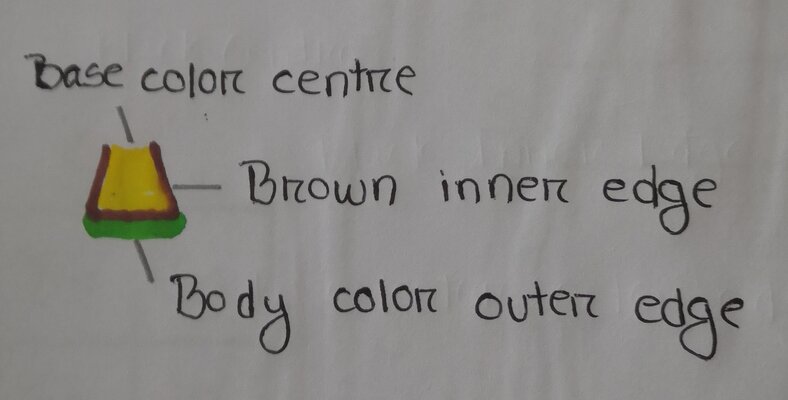 Base color centre
Brown inner edge
Body color outer edge